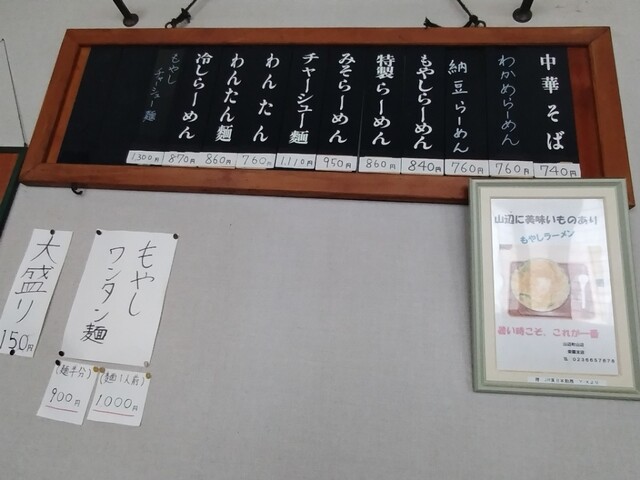 中華そば
740円
わかめらーめん
760円
納豆らーめん
760円
もやしらーめん
840円
特製らーめん
860円
みそらーめん
950円
チャーシュー麺
1,110円
わんたん
760円
わんたん麺
860円
冷しらーめん
870円
もやしチャーシュー麺
1300円
もやし
ワンタン麺
(麺1人前)
1,000円
(麺半分)
900円
大盛り
150円
山辺に美味いものあり
もやしラーメン
暑い時こそ、これが一番
山辺町山辺